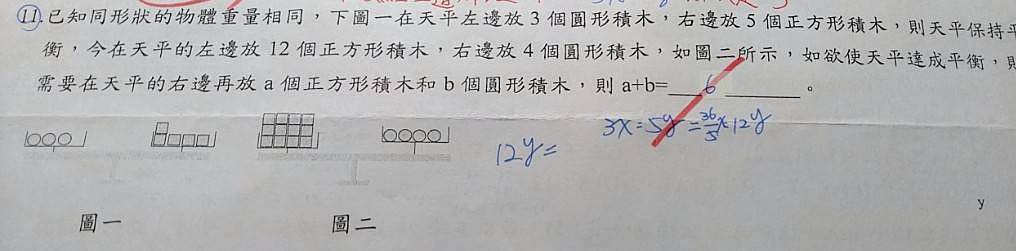 ⑪.已知同形狀的物體重量相同，下圖一在天平左邊放 3 個圓形積木，右邊放 5 個正方形積木，則天平保持平
衡，今在天平的左邊放 12 個正方形積木，右邊放 4 個圓形積木，如圖二所示，如欲使天平達成平衡，則
需要在天平的右邊再放 a 個正方形積木和 b 個圓形積木，則 a+b=___6___。
3x=5y=36/5x12y
12y=
y
圖一 圖二